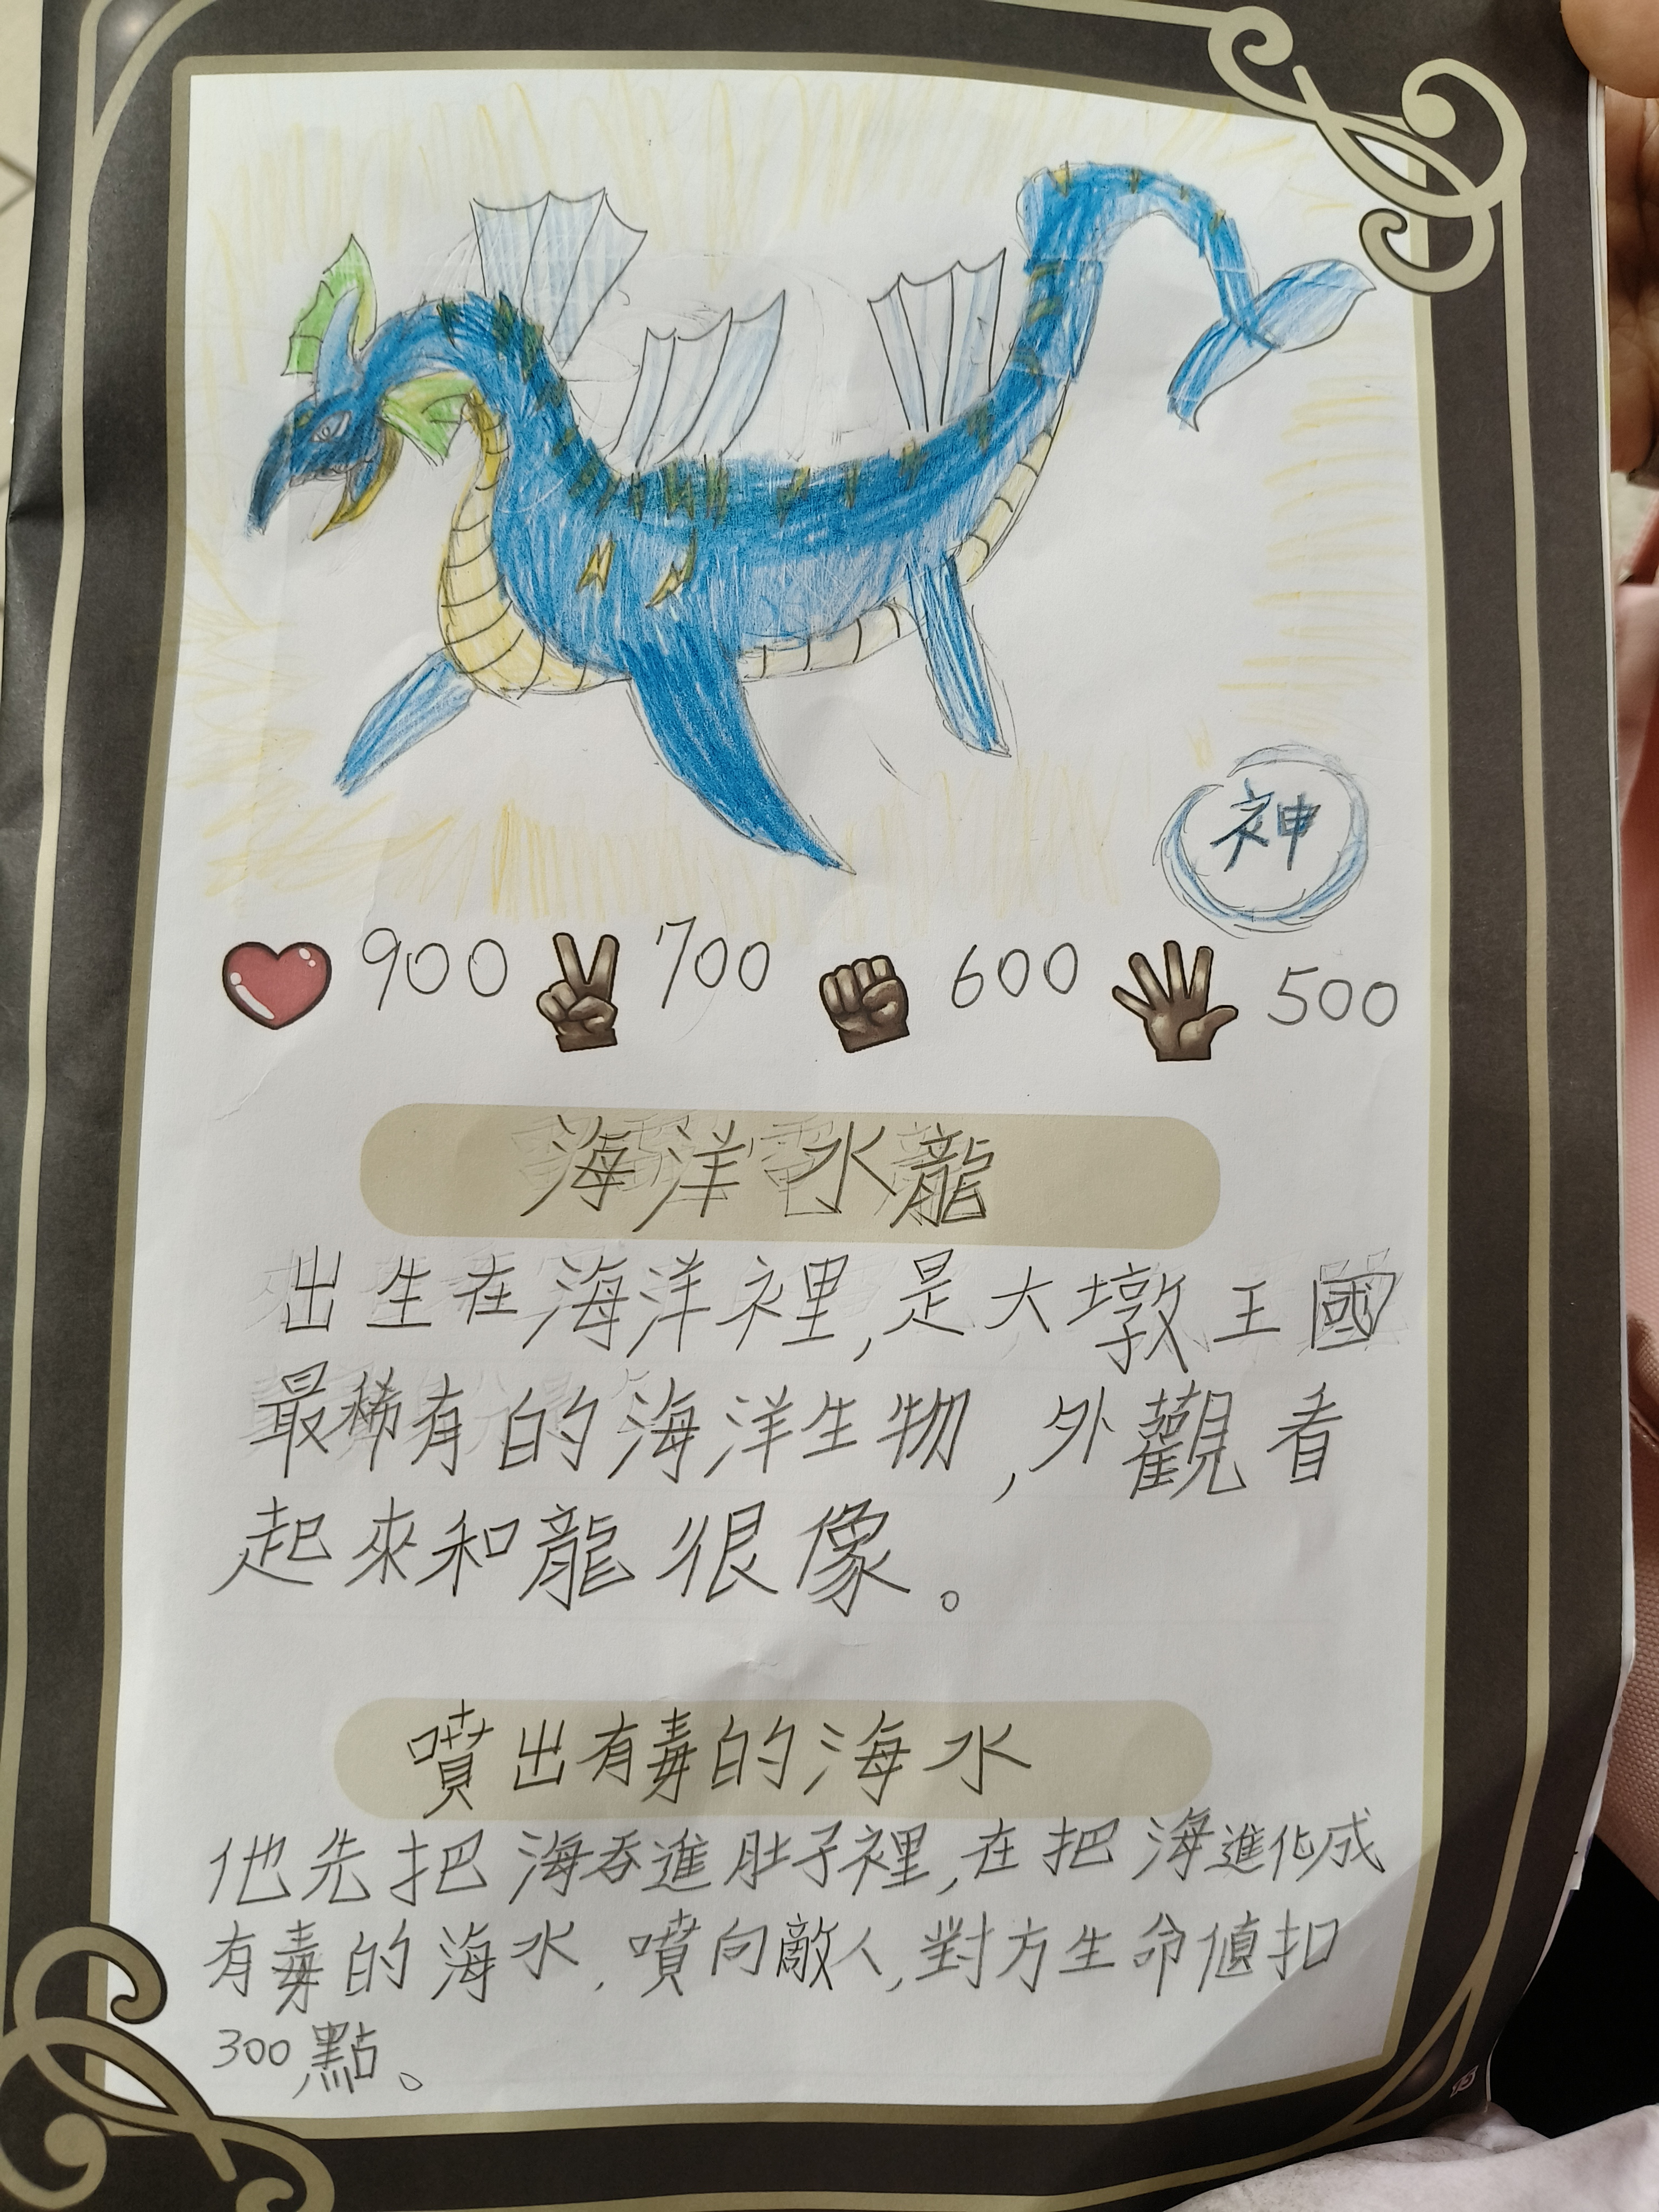 神
900 700 600 500
海洋水龍
出生在海洋裡,是大墩王國
最稀有的海洋生物,外觀看
起來和龍很像。
噴出有毒的海水
他先把海吞進肚子裡,在把海進化成
有毒的海水,噴向敵人,對方生命值扣
300點。